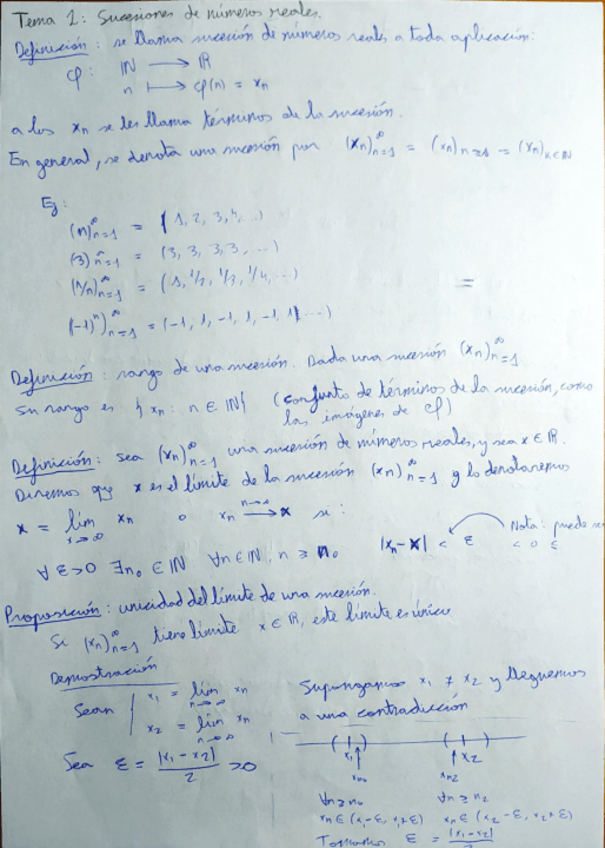 Tema 1: Sucesiones de números reales.
Definición: se llama sucesión de números reales a toda aplicación:
φ: ℕ ⟶ ℝ
n ⟼ φ(n) = xₙ
a los xₙ se les llama términos de la sucesión.
En general, se denota una sucesión por (xₙ)ₙ₌₁^∞ = (xₙ)ₙ≥₁ = (xₙ)ₙ∈ℕ
Eg:
(n)ₙ₌₁^∞ = (1, 2, 3, 4, ...)
(3)ₙ₌₁^∞ = (3, 3, 3, 3, ...)
(1/n)ₙ₌₁^∞ = (1, 1/2, 1/3, 1/4, ...)
=
(-1)ⁿ)ₙ₌₁^∞ = (-1, 1, -1, 1, -1, 1, ...)
Definición: rango de una sucesión. Dada una sucesión (xₙ)ₙ₌₁^∞
su rango es {xₙ: n ∈ ℕ} (conjunto de términos de la sucesión, como
las imágenes de φ)
Definición: sea (xₙ)ₙ₌₁^∞ una sucesión de números reales, y sea x ∈ ℝ.
Diremos que x es el límite de la sucesión (xₙ)ₙ₌₁^∞ y lo denotaremos
x = lím xₙ o xₙ ⟶ x si:
∀ε>0 ∃n₀ ∈ ℕ ∀n∈ℕ, n ≥ n₀ |xₙ-x| < ε
Nota: puede
< o ≤
Proposición: unicidad del límite de una sucesión.
Si (xₙ)ₙ₌₁^∞ tiene límite x ∈ ℝ, este límite es único
Demostración
Sean { x₁ = lím xₙ n→∞
x₂ = lím xₙ n→∞
Sea ε = |x₁-x₂|/2 >0
Supongamos x₁ ≠ x₂ y lleguemos
a una contradicción
x₁ x₂
xₙ₀ xₙ₂
∀n≥n₀ ∀n≥n₂
xₙ∈(x₁-ε, x₁+ε) xₙ∈(x₂-ε, x₂+ε)
Tomamos ε = |x₁-x₂|/2